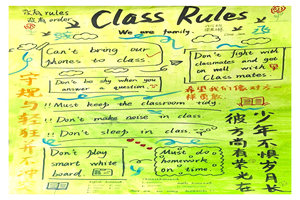 rules
order
Class Rules
We are family.
Can't bring our
phones to class.
Don't fight with
classmates and get
on well with
Classmates
Don't be shy when you
answer a question.
!! Must keep the classroom tidy.
!! Don't make noise in class.
!! Don't sleep in class.
Don't play
smart white
board.
Must do
homework
on time.
少年不惧岁月长
彼方尚有荣光在